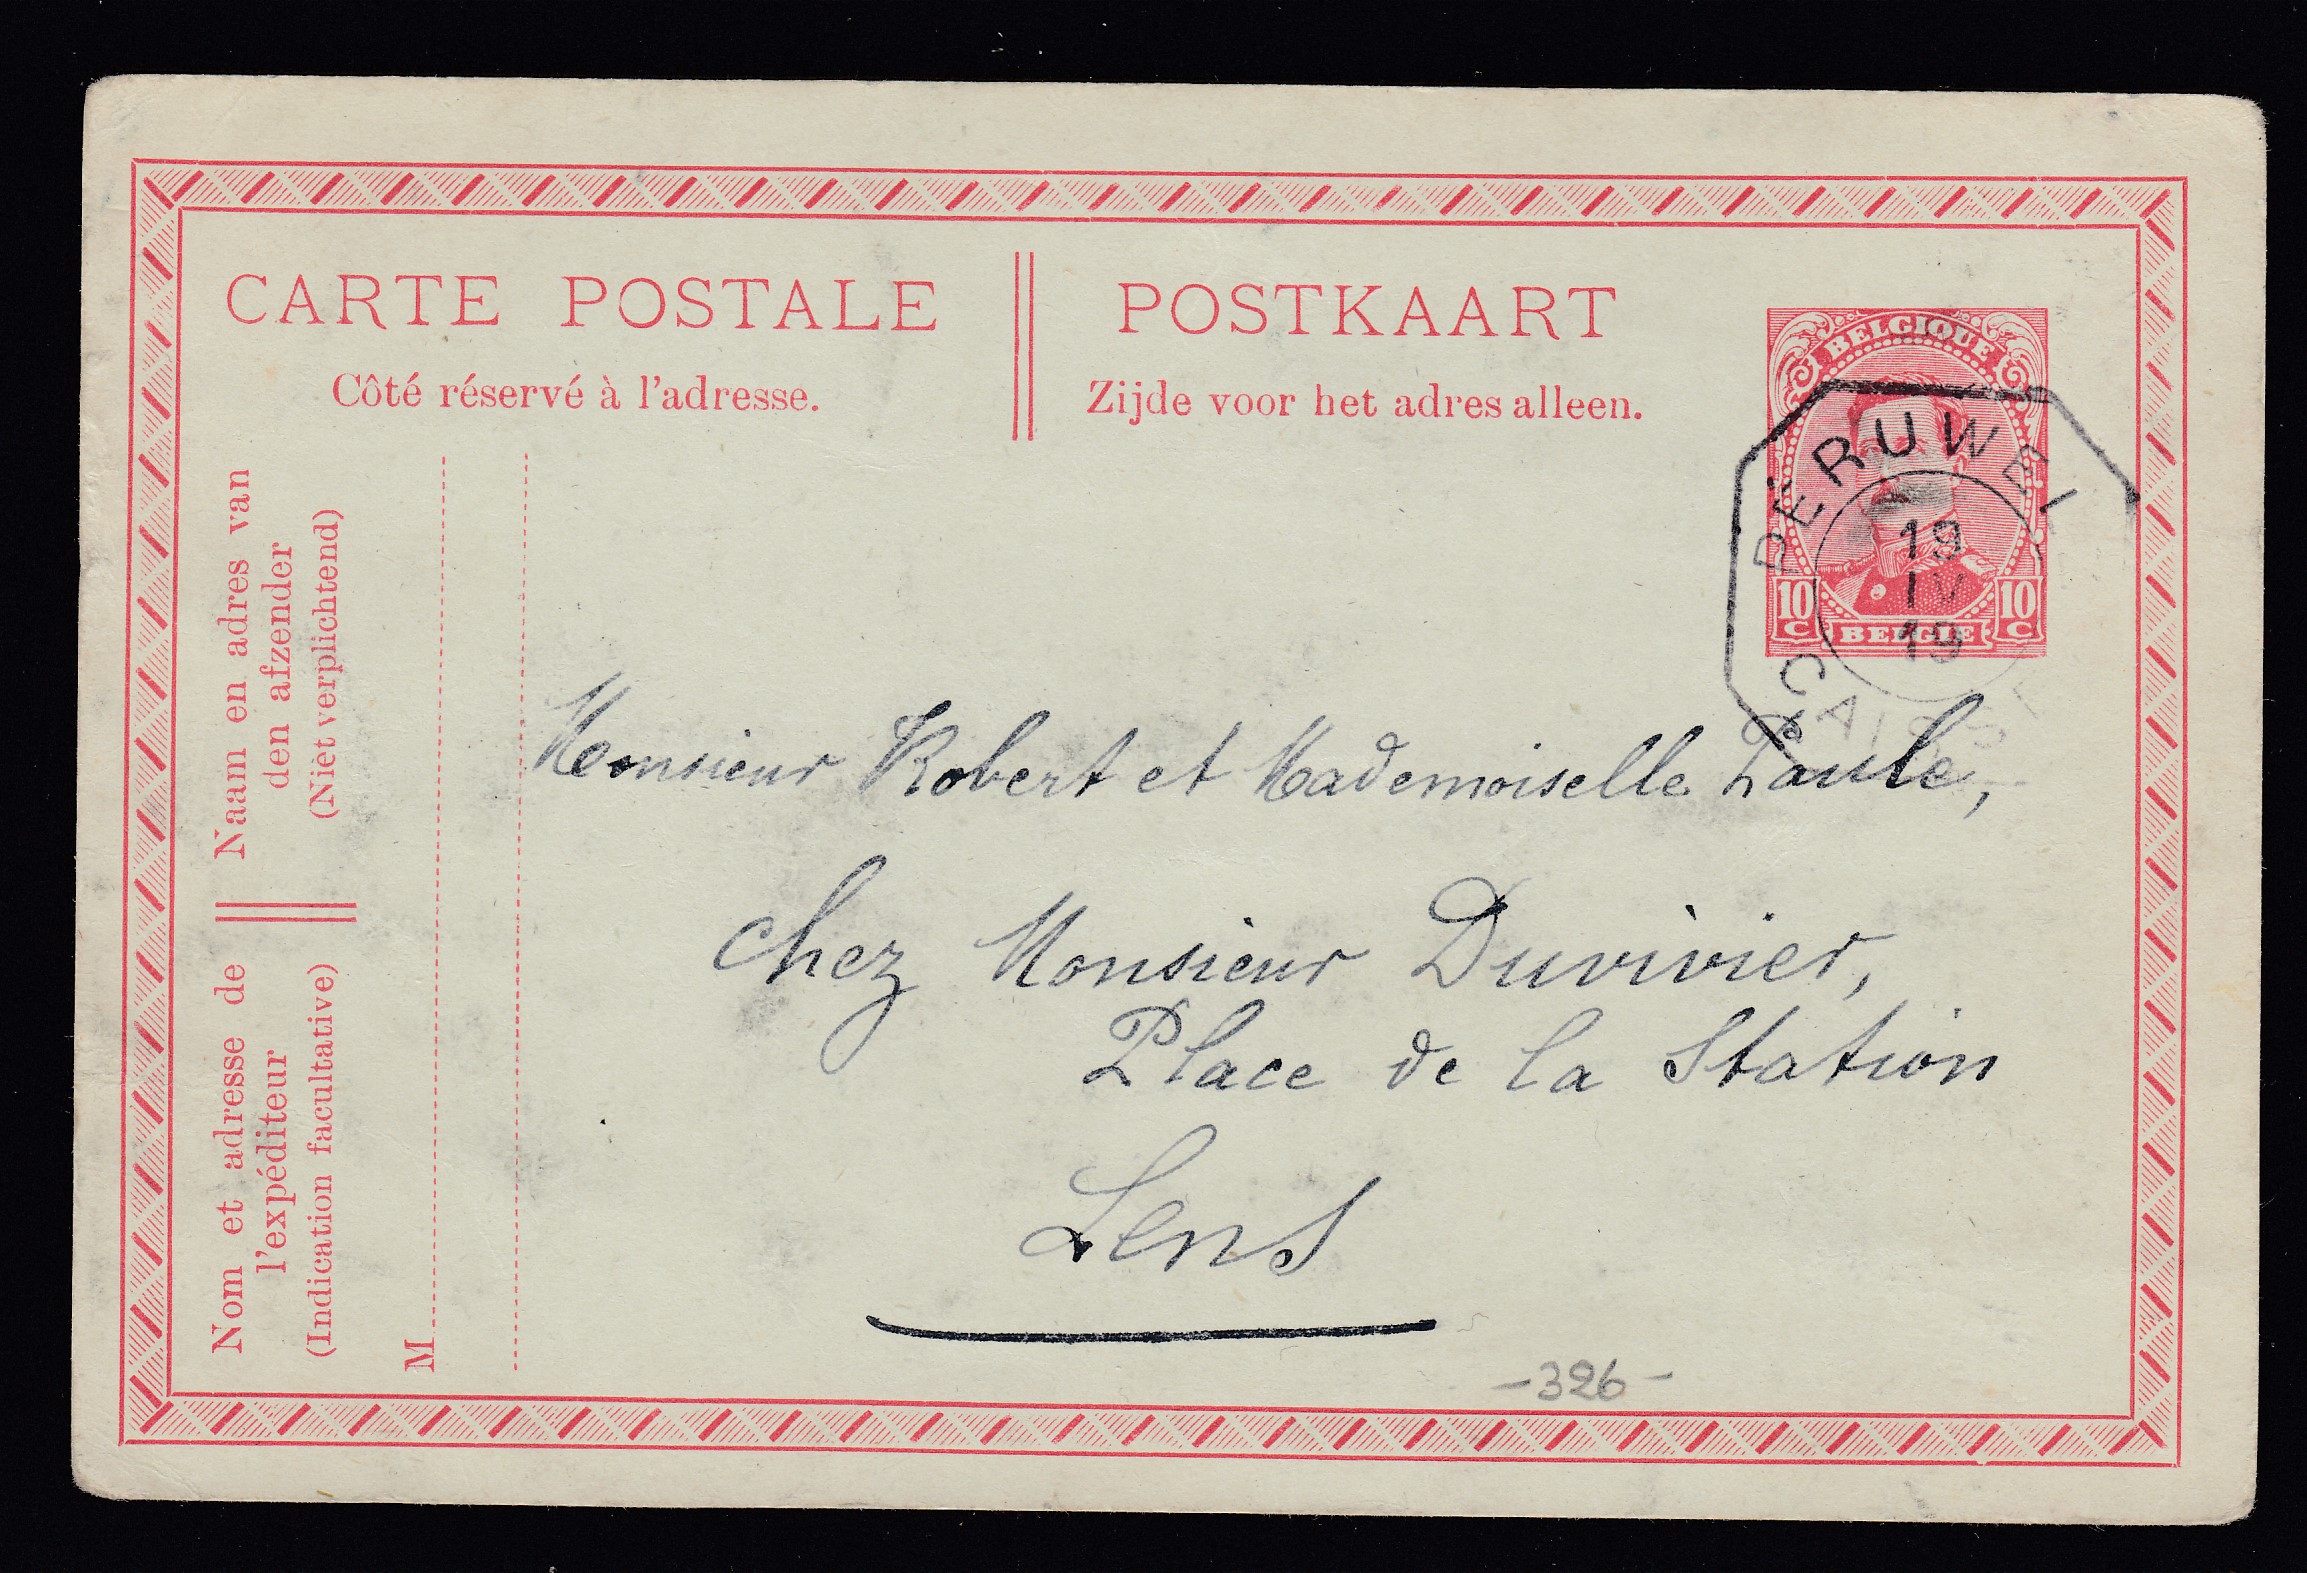 CARTE POSTALE
Côté réservé à l'adresse.
POSTKAART
Zijde voor het adres alleen.
BELGIQUE
10 C
BELGIE
10 C
PÉRUWEL
19
IV
19
CAISSE
Naam en adres van
den afzender
(Niet verplichtend)
Nom et adresse de
l'expéditeur
(Indication facultative)
M
Monsieur Robert et Mademoiselle Paule,
chez Monsieur Duvivier,
Place de la Station
Lens
-326-